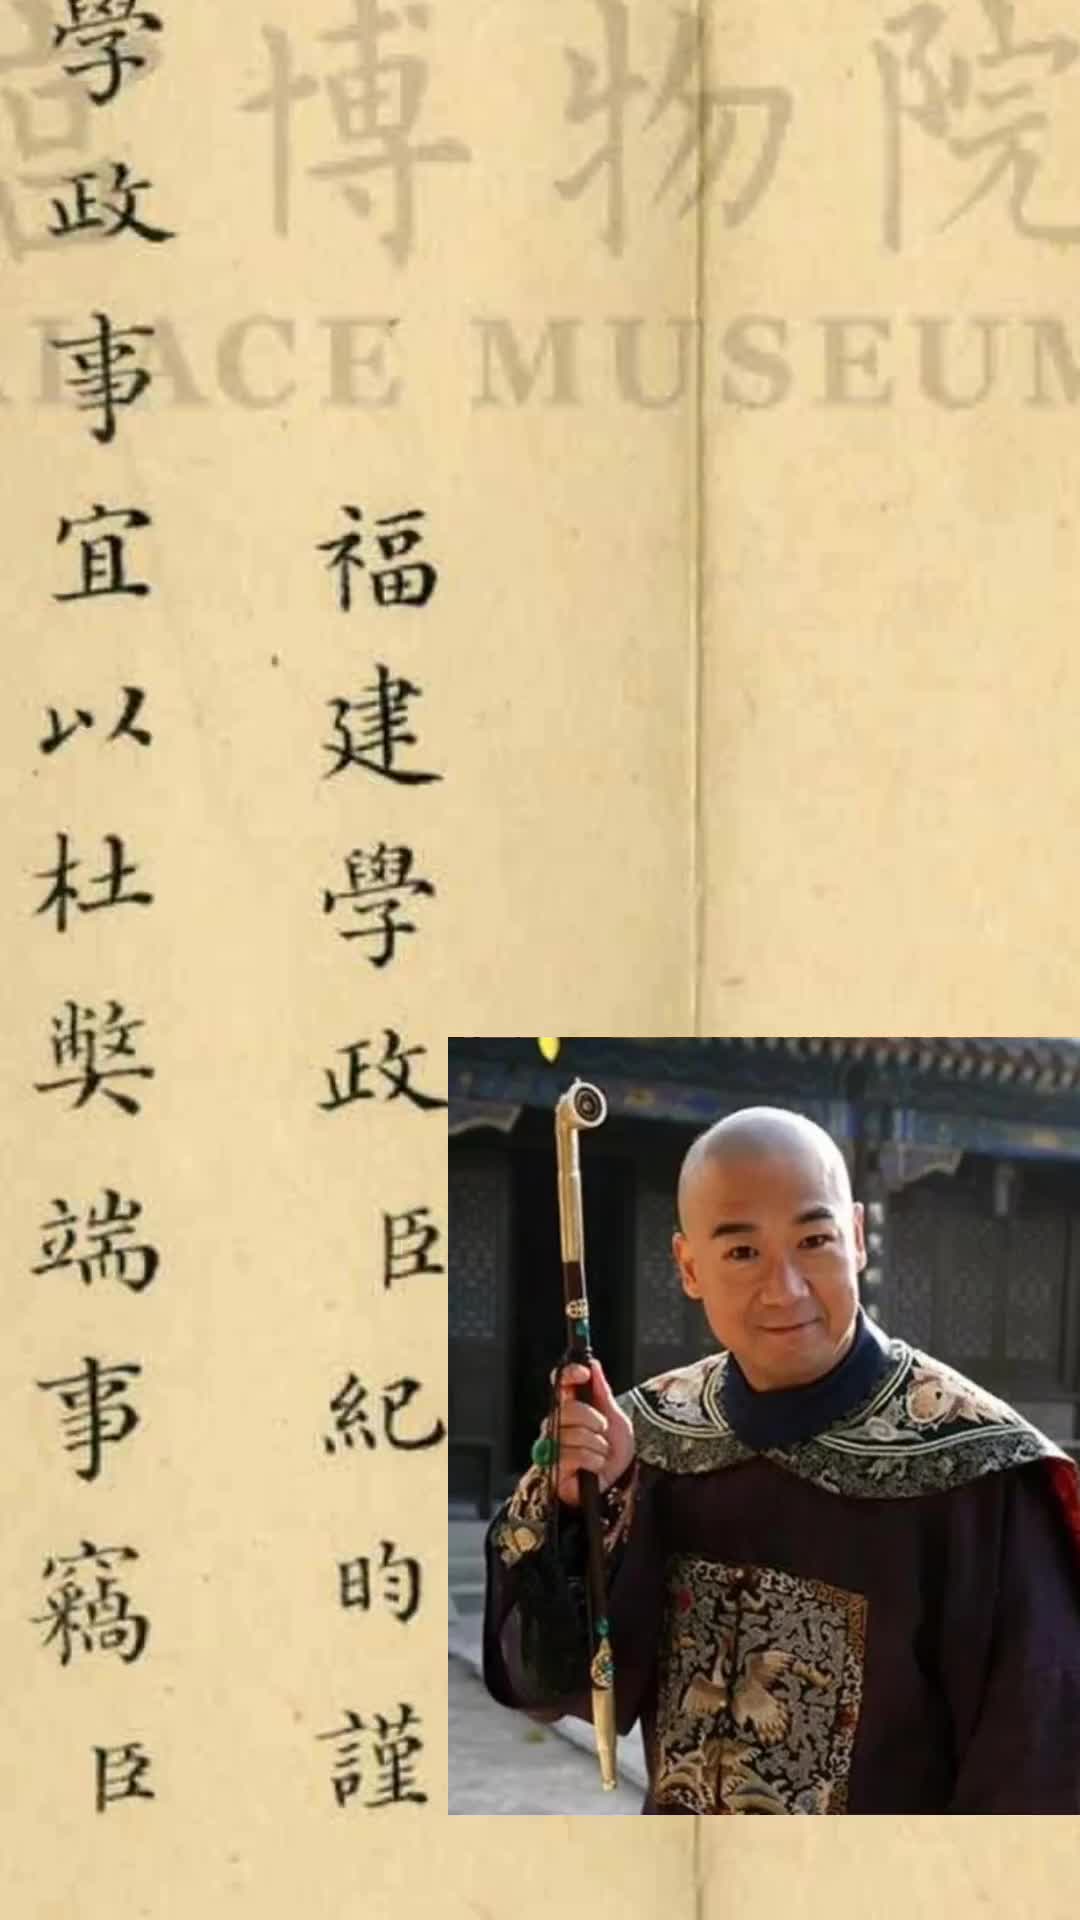 宫博物院
ALACE MUSEUM
福建學政臣紀昀謹
學政事宜以杜獘端事竊臣